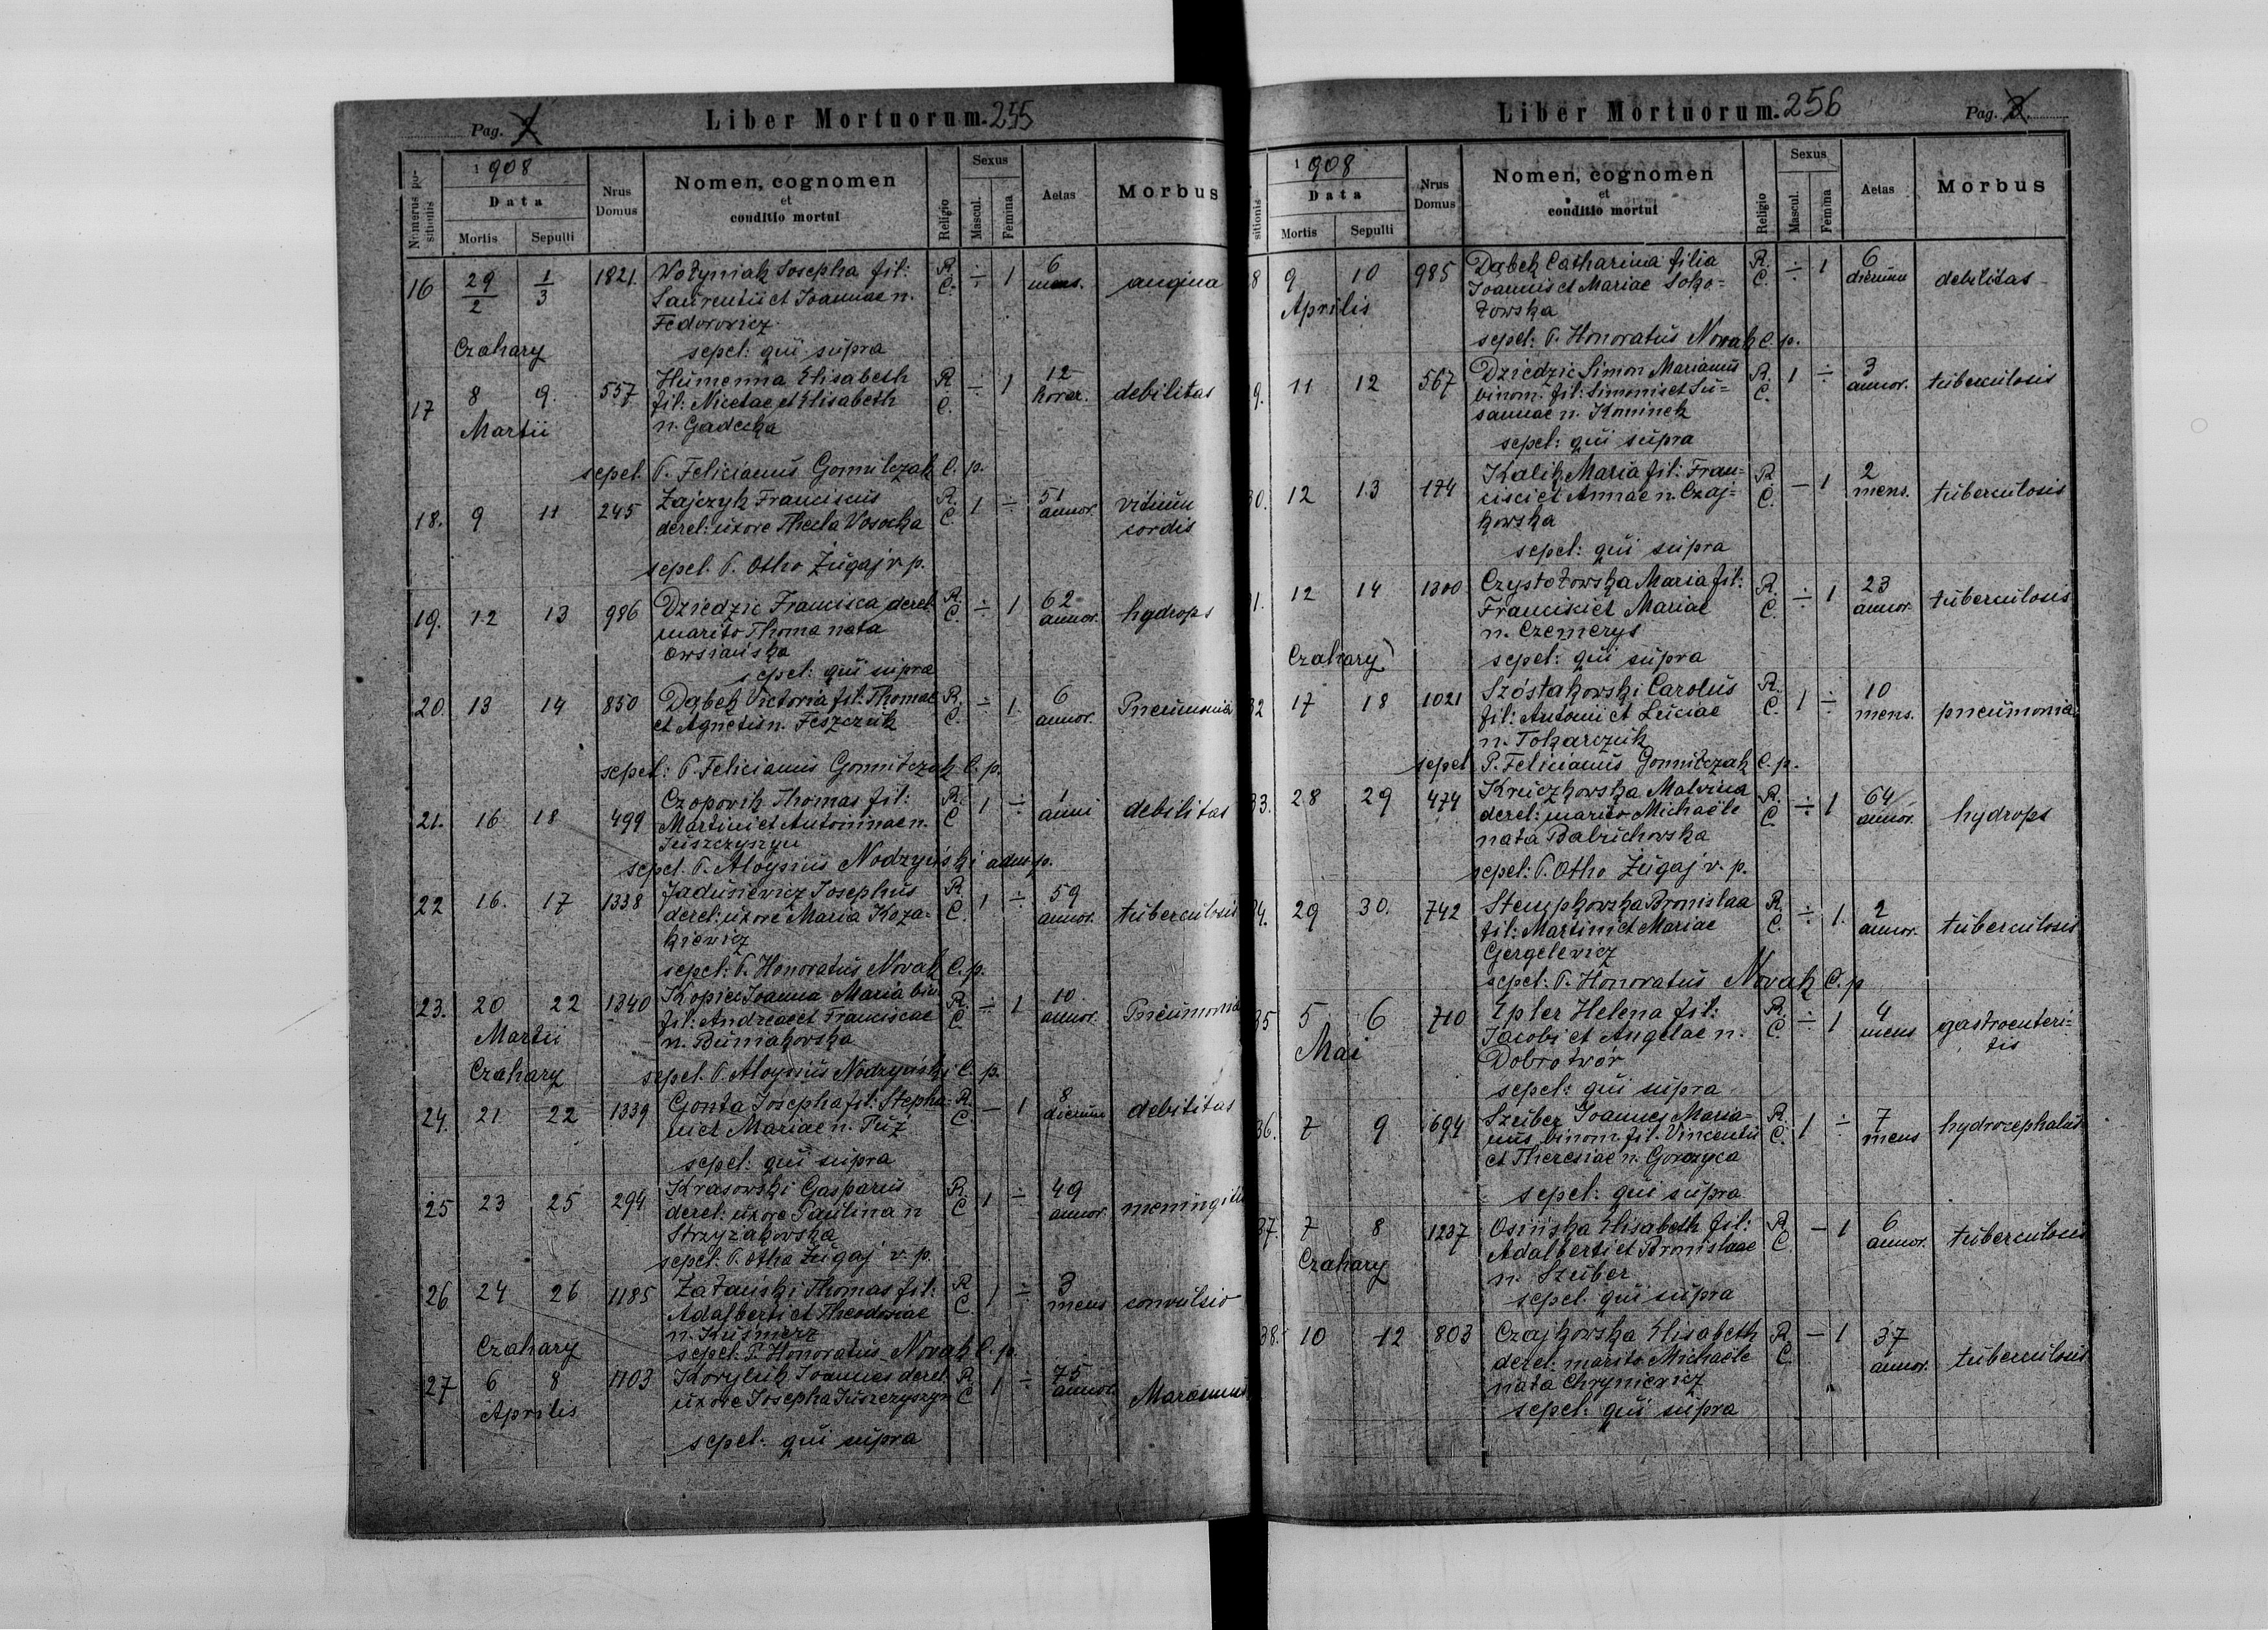 Pag.
Liber Mortuorum. 255
Numerus positionis
1908
Data
Mortis
Sepulti
Nrus Domus
Nomen, cognomen
et
conditio mortui
Religio
Sexus
Mascul.
Femina
Aetas
Morbus
16 29/2 1/3 1821 Wołyniak Josepha fil: R. C. ÷ 1 6 mens. angina
Laurentii et Joannae n.
Fedorovicz
Czahary sepel: qui supra
17 8 9. 557 Humenna Elisabeth R C. ÷ 1 12 horar. debilitas
Martii fil: Nicetae et Elisabeth
n. Gadecka
sepel. P. Felicianus Gomułczak C. p.
18. 9 11 245 Zajczyk Franciscus R. C. 1 ÷ 51 annor. vitium cordis
derel: uxore Thecla Vosocka
sepel. P. Otho Zugaj v. p.
19. 12 13 986 Dziedzic Francisca derel. R. C. ÷ 1 62 annor. hydrops
marito Thoma nata
Owsiańska
sepel: qui supra
20. 13 14 850 Dąbek Victoria fil: Thomae R. C. ÷ 1. 6 annor. Pneumonia
et Agnetis n. Feszczuk
sepel: P. Felicianus Gomułczak C. p.
21. 16 18 499 Czopovik Thomas fil: R. C 1 ÷ 1 anni debilitas
Martini et Antoninae n.
Juszczyszyn
sepel. P. Aloysius Nodzyński adm. p.
22 16. 17 1338 Jadusiewicz Josephus R C. 1 ÷ 59 annor. tuberculosis
derel: uxore Maria Koza-
kiewicz
sepel: P. Honoratus Novak C. p.
23. 20 22 1340 Kopiec Joanna Maria bin. R. C. ÷ 1 10 annor. Pneumonia
Martii fil: Andreae et Franciscae
n. Buniakovska
Czahary sepel. P. Aloysius Nodzyński C. p.
24. 21 22 1339 Gonta Josepha fil: Stepha- R. C. — 1 8 dierum debilitas
ni et Mariae n. Puz
sepel: qui supra
25 23 25 294 Krasowski Gasparus R. C 1 ÷ 49 annor. meningitis
derel: uxore Paulina n
Strzyzakovska
sepel. P. Otho Zugaj v. p.
26 24 26 1185 Załański Thomas fil: R C. 1 ÷ 3 mens convulsio
Adalberti et Theodosiae
n. Kuśmierz
Czahary sepel: P. Honoratus Novak C. p.
27 6 8 1103 Koryluk Joannes derel. R C 1 ÷ 75 annor.
Aprilis uxore Josepha Juszczyszyn
sepel. qui supra
Liber Mortuorum. 256
Pag.
sitionis
1908
Data
Mortis
Sepulti
Nrus Domus
Nomen, cognomen
et
conditio mortui
Religio
Sexus
Mascul.
Femina
Aetas
Morbus
8 9 10 985 Dąbek Catharina filia R. C. ÷ 1 6 dierum debilitas
Aprilis Joannis et Mariae Soko=
łowska
sepel: P. Honoratus Novak C. p.
9. 11 12 567 Dziedzic Simon Marianus R. C. 1 ÷ 3 annor. tuberculosis
binom. fil: Simonis et Su=
sannae n. Kominek
sepel: qui supra
30. 12 13 174 Kalik Maria fil: Fran= R C. — 1 2 mens. tuberculosis
cisci et Annae n. Czaj=
kowska
sepel: qui supra
1. 12 14 1300 Czystołowska Maria fil: R. C. ÷ 1 23 annor. tuberculosis
Francisci et Mariae
n. Czemerys
Czahary sepel: qui supra
32 17 18 1021 Szóstakowski Carolus R. C. 1 ÷ 10 mens. pneumonia
fil: Antonii et Luciae
n. Tokarczuk
sepel P. Felicianus Gomułczak C. p.
33. 28 29 474 Kruczkowska Malvina R. C. ÷ 1 64 annor. hydrops
derel: marito Michaële
nata Babuchowska
sepel: P. Otho Zugaj v. p.
4. 29 30. 742 Stempkovska Bronislaa R C. ÷ 1. 2 annor. tuberculosis
fil: Martini et Mariae
Gergelevicz
sepel: P. Honoratus Novak C. p
35 5 6 710 Epler Helena fil: R. C. ÷ 1 4 mens gastroenteri=
tis
Mai Jacobi et Angelae n.
Dobrotwór
sepel: qui supra
36. 7 9 694 Szuber Joannes Maria= R. C. 1 ÷ 7 mens hydrocephalus
nus binom. fil. Vincentii
et Theresiae n. Gorczyca
sepel: qui supra
37. 7 8 1237 Osińska Elisabeth fil: R C — 1 6 annor. tuberculosis
Czahary Adalberti et Bronislaae
n. Szuber
sepel. qui supra
38. 10 12 803 Czajkowska Elisabeth R. C. — 1 37 annor. tuberculosis
derel: marito Michaële
nata Chryniewicz
sepel: qui supra